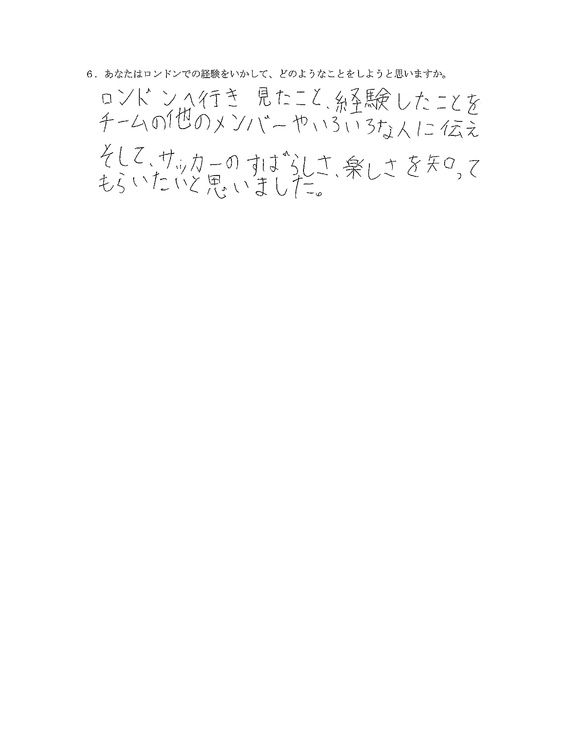 6．あなたはロンドンでの経験をいかして、どのようなことをしようと思いますか。
ロンドンへ行き 見たこと、経験したことを
チームの他のメンバーやいろいろな人に伝え
そして、サッカーのすばらしさ、楽しさを知って
もらいたいと思いました。